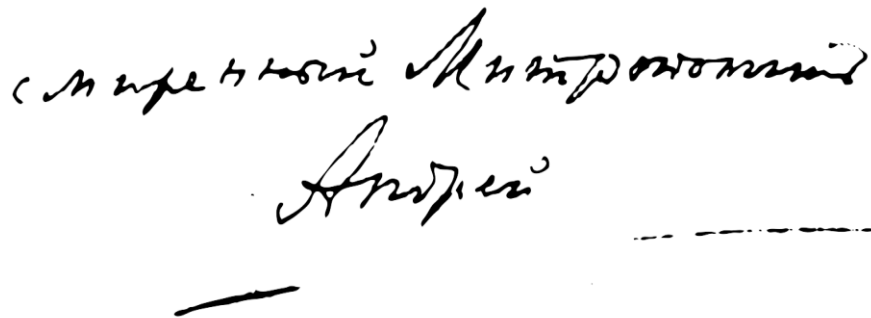 смиренный Митрополит
Андрей